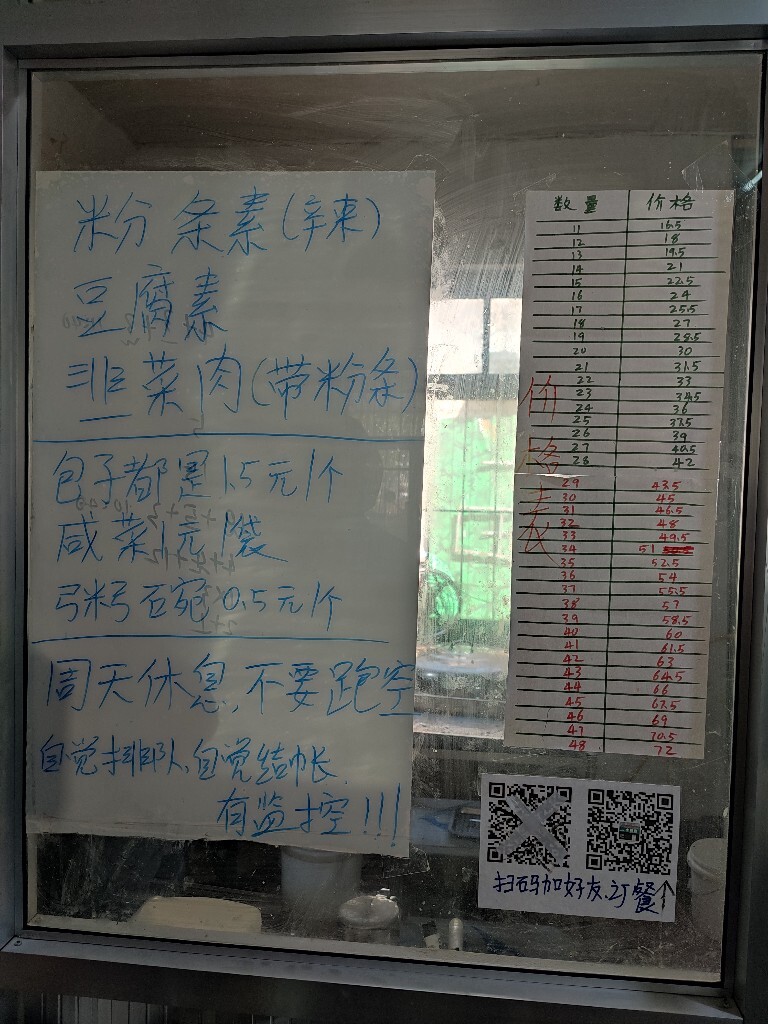 粉条素(辛束)
豆腐素
韭菜肉(带粉条)
包子都是1.5元1个
咸菜1元1袋
粥碗0.5元1个
周天休息,不要跑空
自觉排队,自觉结帐
有监控!!!
价格表
数量 价格
11 16.5
12 18
13 19.5
14 21
15 22.5
16 24
17 25.5
18 27
19 28.5
20 30
21 31.5
22 33
23 34.5
24 36
25 37.5
26 39
27 40.5
28 42
29 43.5
30 45
31 46.5
32 48
33 49.5
34 51
35 52.5
36 54
37 55.5
38 57
39 58.5
40 60
41 61.5
42 63
43 64.5
44 66
45 67.5
46 69
47 70.5
48 72
扫码加好友、订餐↑